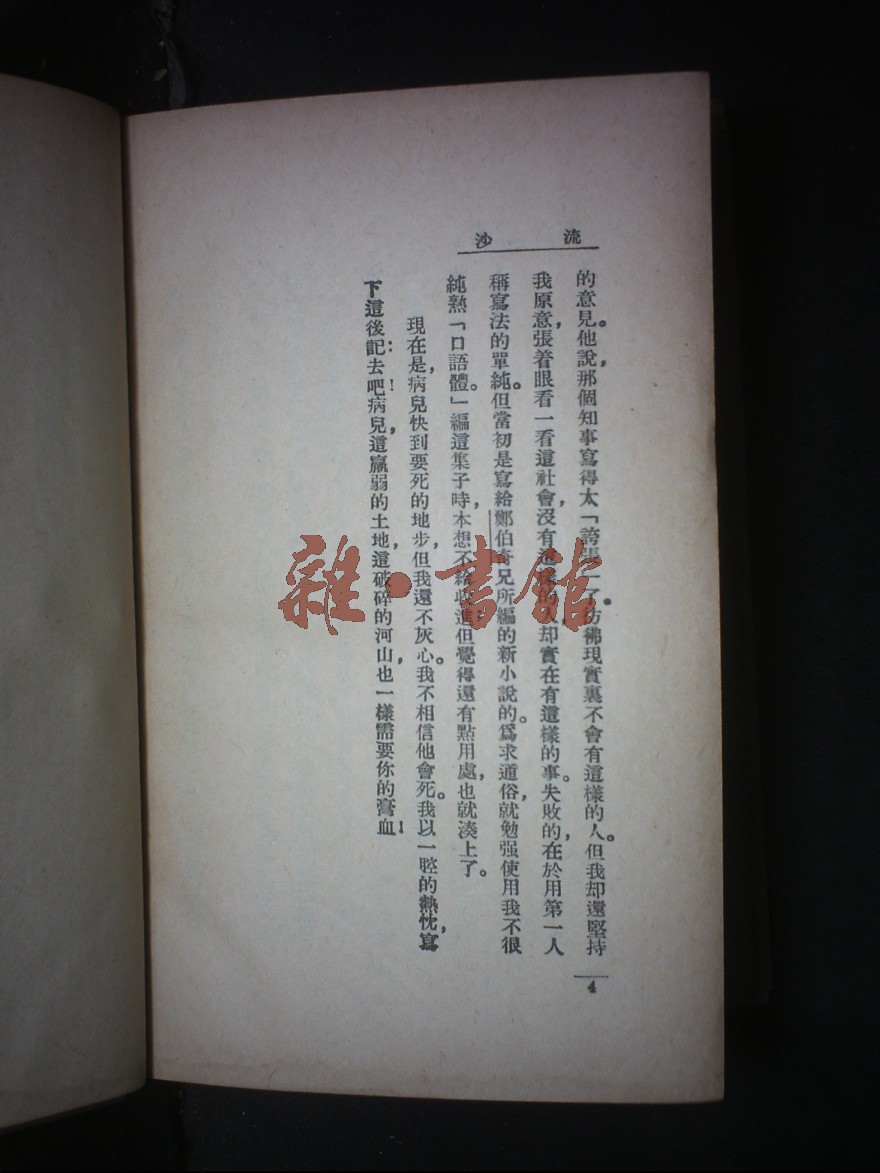 流沙
的意見。他說，那個知事寫得太「誇張」了。彷彿現實裏不會有這樣的人。但我却還堅持
我原意，張着眼看一看這社會，沒有這樣的人，却實在有這樣的事。失敗的，在於用第一人
稱寫法的單純。但當初是寫給鄭伯奇兄所編的新小說的。爲求通俗，就勉强使用我不很
純熟「口語體。」編這集子時，本想不收進，但覺得還有點用處，也就湊上了。
現在是，病兒快到要死的地步，但我還不灰心。我不相信他會死。我以一腔的熱忱，寫
下這後記：去吧！病兒，這羸弱的土地，這破碎的河山，也一樣需要你的膏血！
4
雜·書館